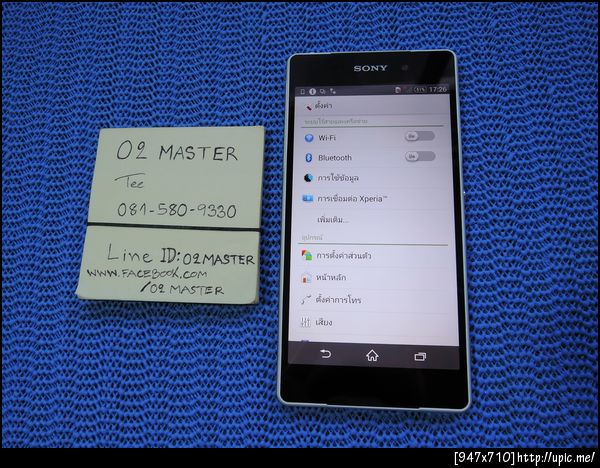 02 MASTER
Tee
081-580-9330
Line ID: 02MASTER
WWW.FACEBOOK.COM
/02 MASTER
SONY
17:26
ตั้งค่า
ระบบไร้สายและเครือข่าย
Wi-Fi
ปิด
Bluetooth
ปิด
การใช้ข้อมูล
การเชื่อมต่อ Xperia™
เพิ่มเติม...
อุปกรณ์
การตั้งค่าส่วนตัว
หน้าหลัก
ตั้งค่าการโทร
เสียง
[947x710]http://upic.me/